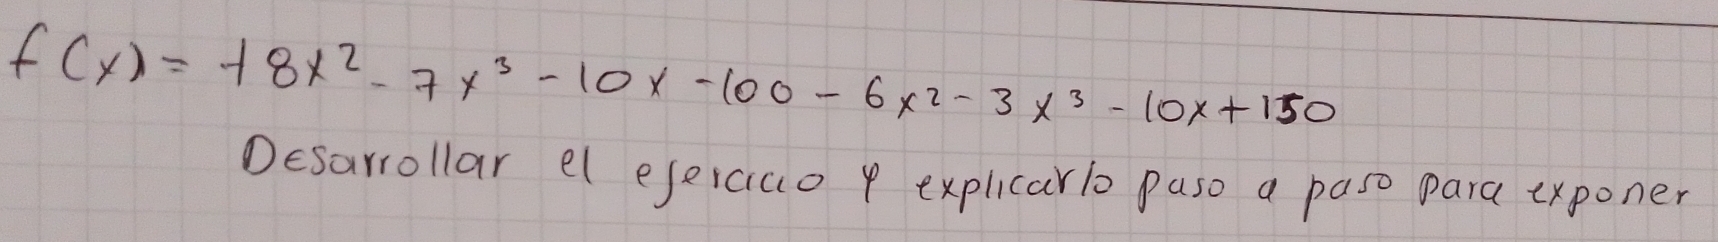 f(x) = +8x² - 7x³ - 10x - 100 - 6x² - 3x³ - 10x + 150
Desarrollar el ejercicio y explicarlo paso a paso para exponer